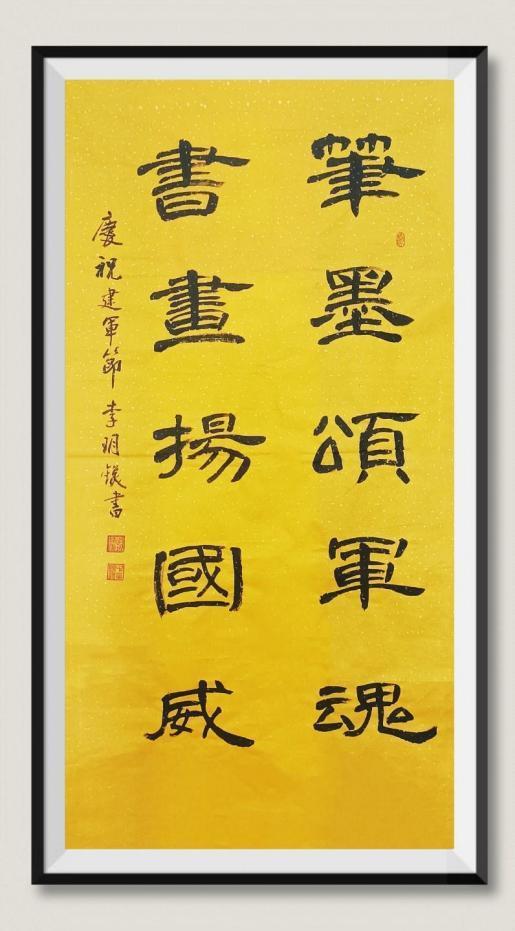 筆墨頌軍魂
書畫揚國威
慶祝建軍節 李明鎂書